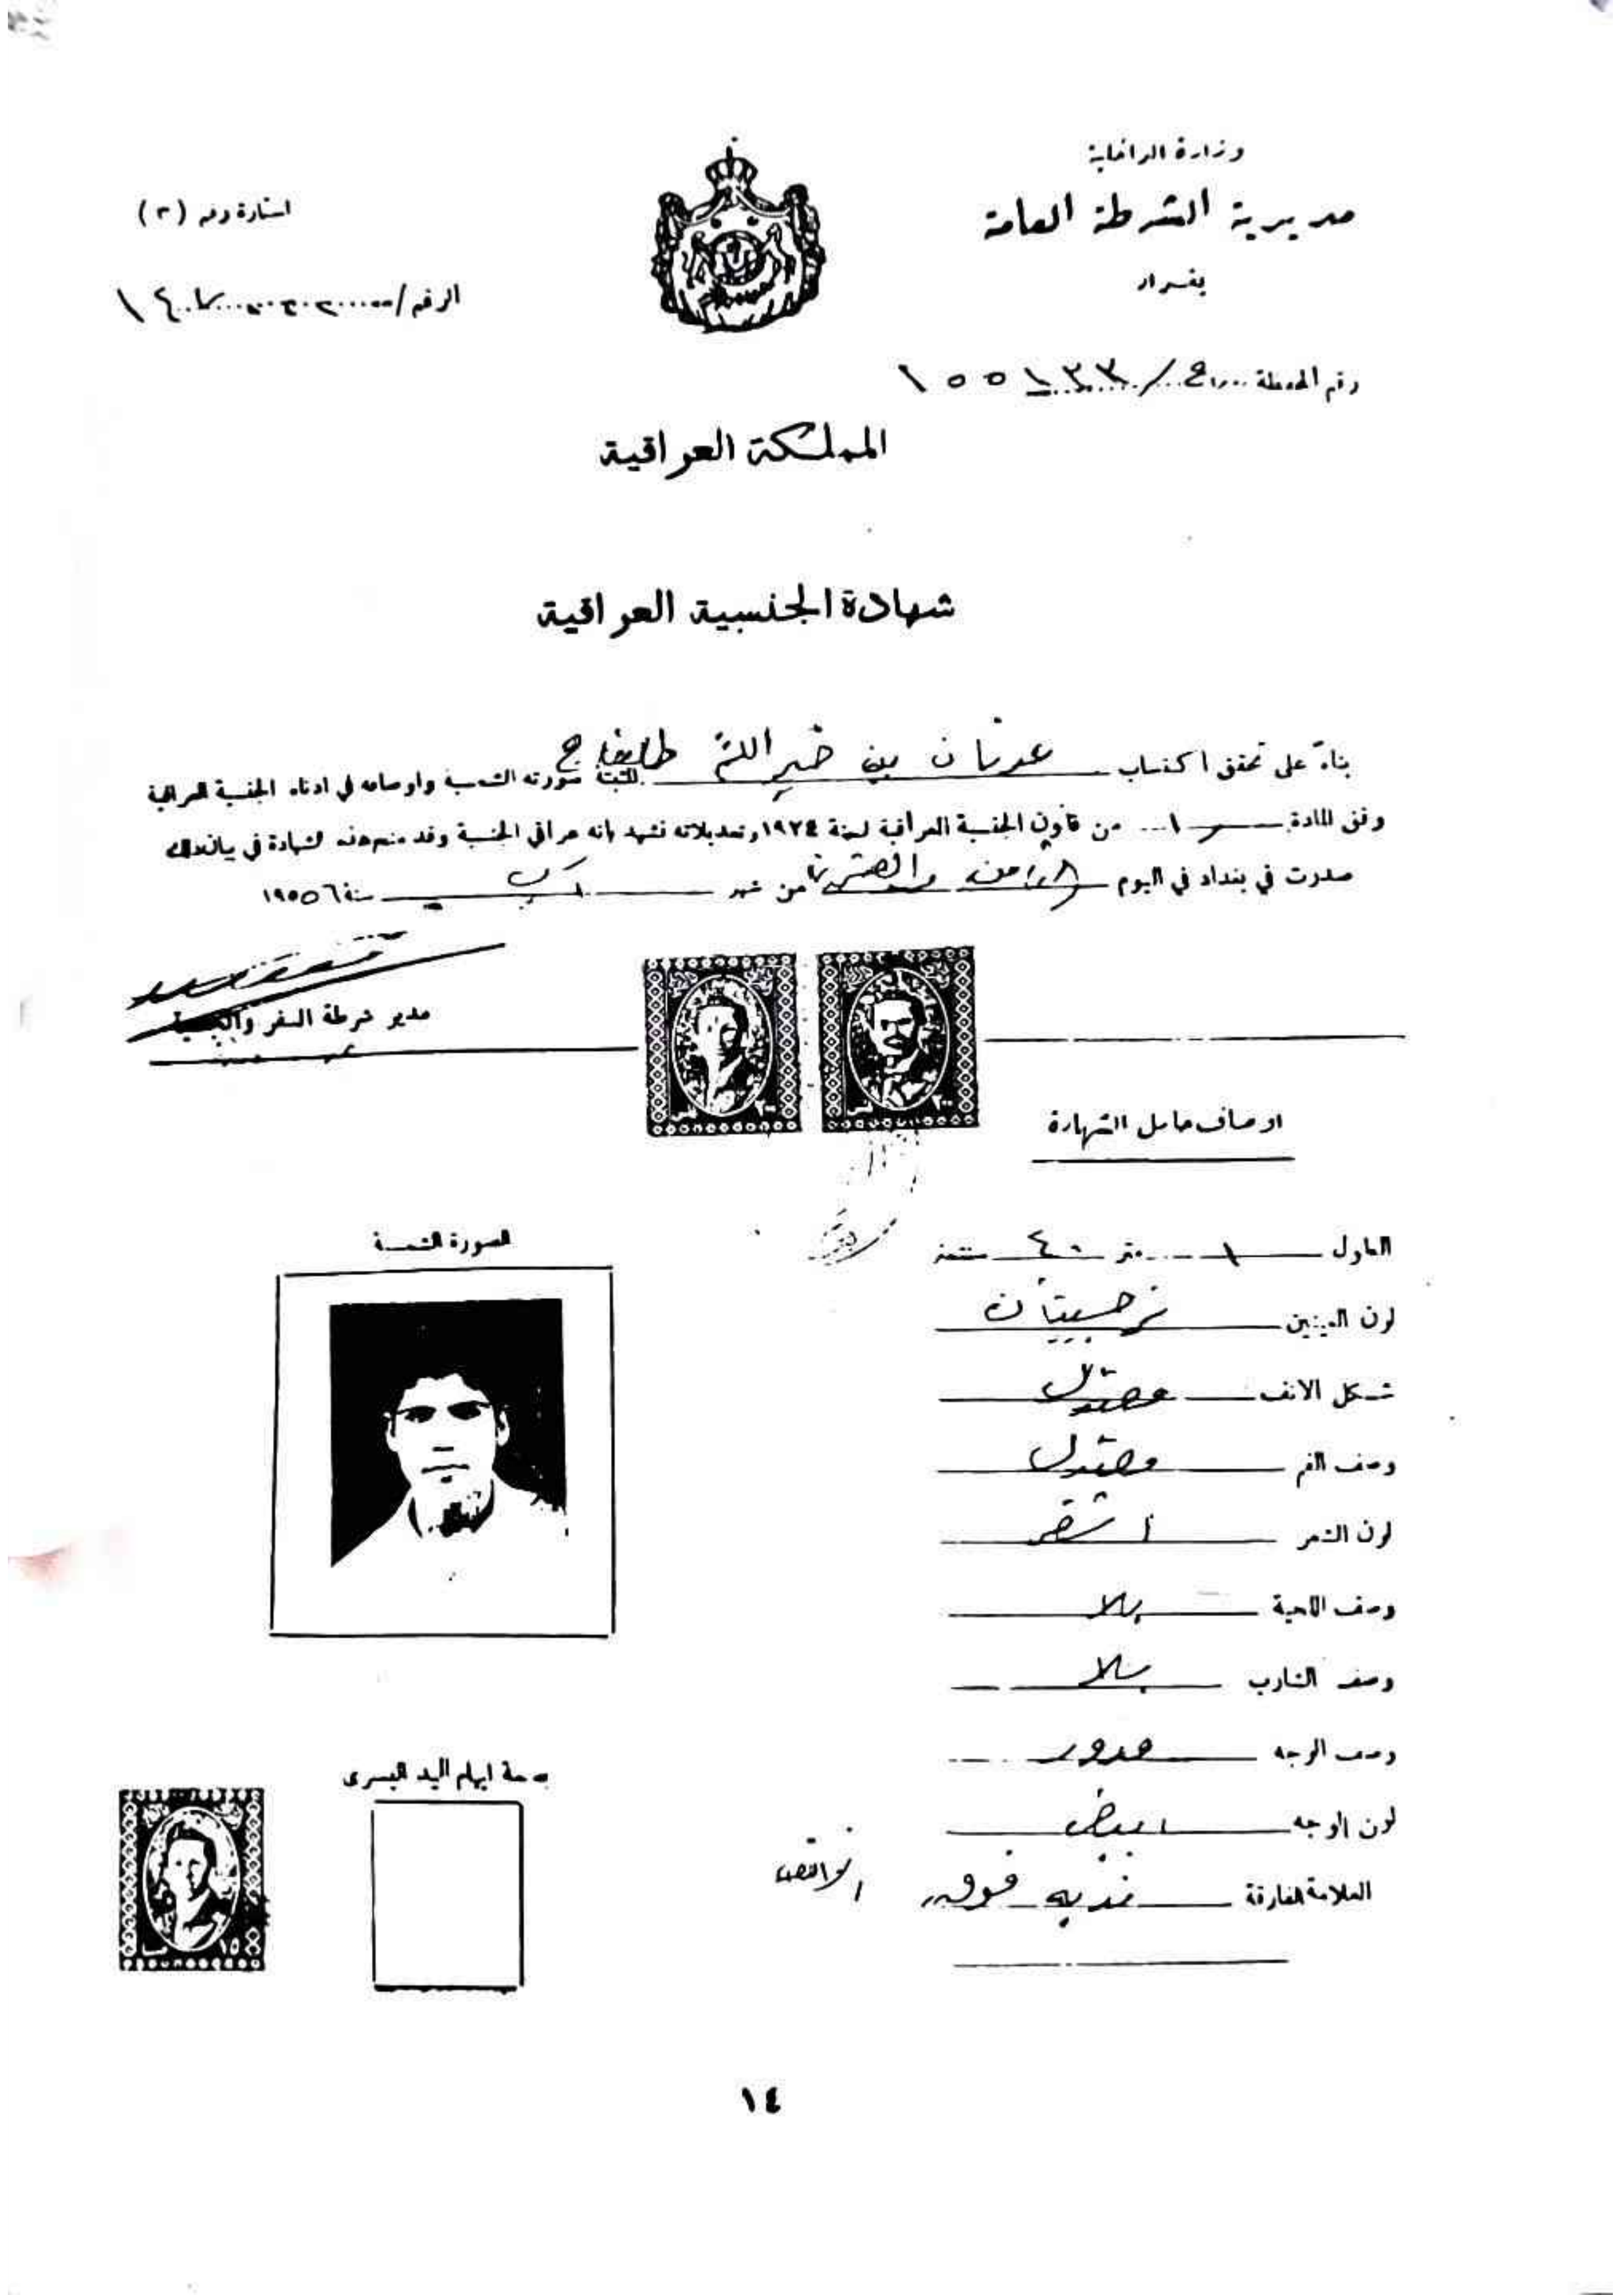 وزارة الداخلية
مديرية الشرطة العامة
بغداد
استمارة رقم (٣)
الرقم /
رقم المحفظة ج / ٣٣ ١٥٥١
المملكة العراقية
شهادة الجنسية العراقية
بناءً على تحقق اكتساب عدنان بن خير الله طلفاح المثبتة صورته الشمسية واوصافه في ادناه الجنسية العراقية
وفق المادة من قانون الجنسية العراقية لسنة ١٩٢٤ وتعديلاته نشهد بانه عراقي الجنسية وقد منح هذه الشهادة في بيان ذلك
صدرت في بغداد في اليوم الثامن والعشرين من شهر آب سنة ١٩٥٥٦
مدير شرطة السفر والجنسية
اوصاف حامل الشهادة
الصورة الشمسية
الطول ١ متر ٤٠ سنتمتر
لون العينين
شكل الانف معتدل
وصف الفم معتدل
لون الشعر اشقر
وصف اللحية بلا
وصف الشارب بلا
وصف الوجه مدور
لون الوجه ابيض
العلامة الفارقة ندبه فوق
بصمة ابهام اليد اليسرى
١٥
١٤